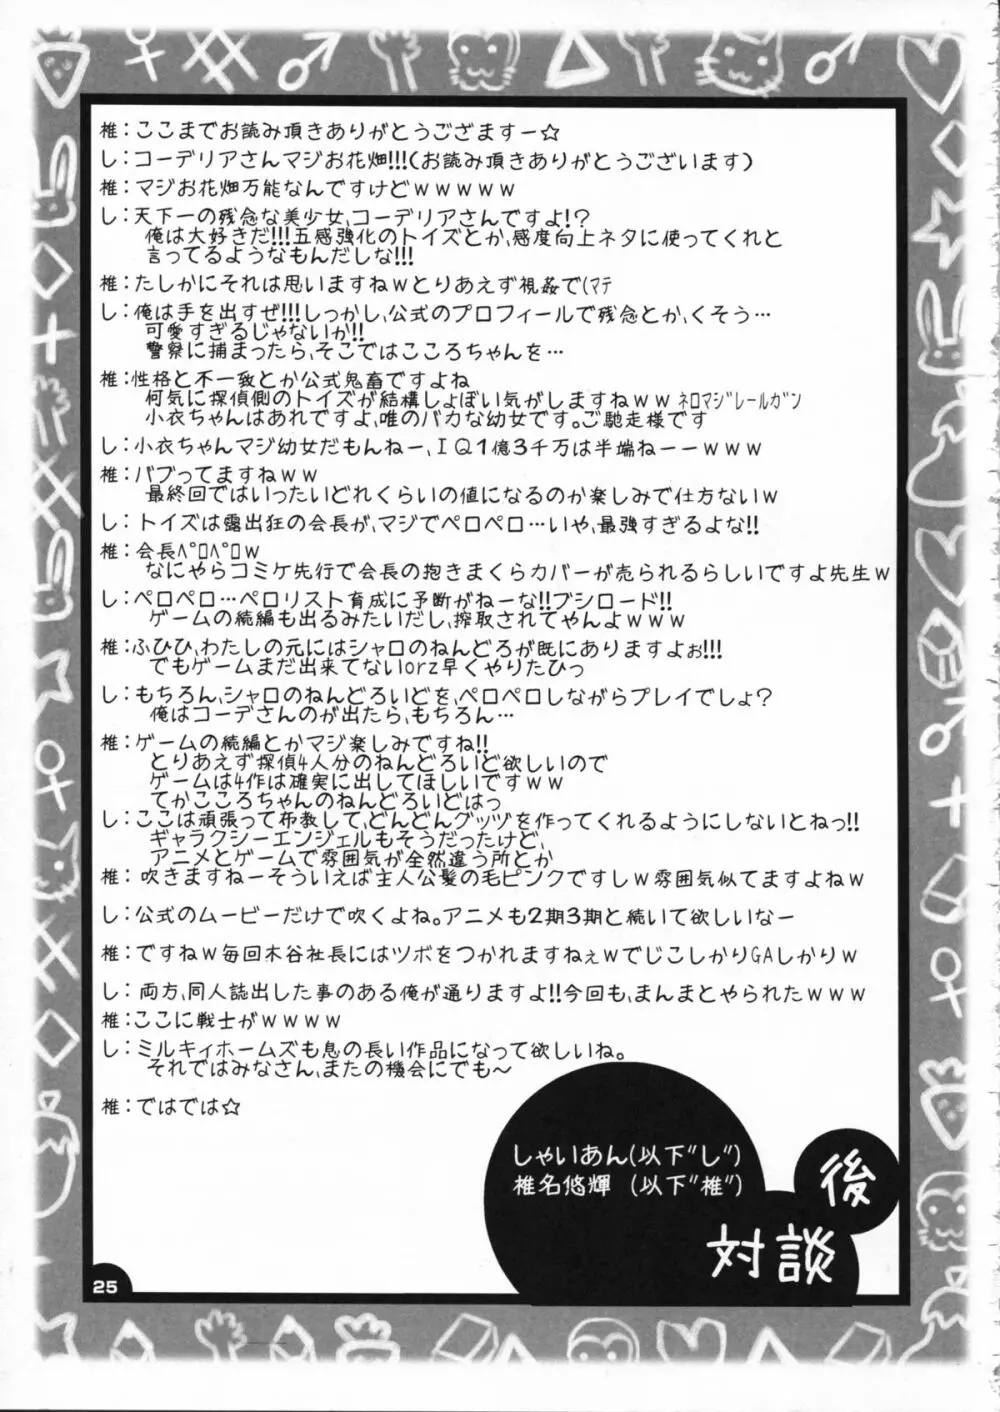 椎：ここまでお読み頂きありがとうござますー☆
し：コーデリアさんマジお花畑!!!(お読み頂きありがとうございます)
椎：マジお花畑万能なんですけどｗｗｗｗｗ
し：天下一の残念な美少女、コーデリアさんですよ!?
俺は大好きだ!!!五感強化のトイズとか、感度向上ネタに使ってくれと
言ってるようなもんだしな!!!
椎：たしかにそれは思いますねｗとりあえず視姦で(ﾏﾃ
し：俺は手を出すぜ!!!しっかし、公式のプロフィールで残念とか、くそう…
可愛すぎるじゃないか!!
警察に捕まったら、そこではこころちゃんを…
椎：性格と不一致とか公式鬼畜ですよね
何気に探偵側のトイズが結構しょぼい気がしますねｗｗ ﾈﾛﾏｼﾞﾚｰﾙｶﾞﾝ
小衣ちゃんはあれですよ、唯のバカな幼女です。ご馳走様です
し：小衣ちゃんマジ幼女だもんねー、ＩＱ1億3千万は半端ねーーｗｗｗ
椎：バブってますねｗｗ
最終回ではいったいどれくらいの値になるのか楽しみで仕方ないｗ
し：トイズは露出狂の会長が、マジでペロペロ…いや、最強すぎるよな!!
椎：会長ﾍﾟﾛﾍﾟﾛｗ
なにやらコミケ先行で会長の抱きまくらカバーが売られるらしいですよ先生ｗ
し：ペロペロ…ペロリスト育成に予断がねーな!!ブシロード!!
ゲームの続編も出るみたいだし、搾取されてやんよｗｗｗ
椎：ふひひ、わたしの元にはシャロのねんどろが既にありますよぉ!!!
でもゲームまだ出来てないorz早くやりたひっ
し：もちろん、シャロのねんどろいどを、ペロペロしながらプレイでしょ?
俺はコーデさんのが出たら、もちろん…
椎：ゲームの続編とかマジ楽しみですね!!
とりあえず探偵4人分のねんどろいど欲しいので
ゲームは4作は確実に出してほしいですｗｗ
てかこころちゃんのねんどろいどはっ
し：ここは頑張って布教して、どんどんグッヅを作ってくれるようにしないとねっ!!
ギャラクシーエンジェルもそうだったけど、
アニメとゲームで雰囲気が全然違う所とか
椎：吹きますねーそういえば主人公髪の毛ピンクですしｗ雰囲気似てますよねｗ
し：公式のムービーだけで吹くよね。アニメも2期3期と続いて欲しいなー
椎：ですねｗ毎回木谷社長にはツボをつかれますねぇｗでじこしかりGAしかりｗ
し：両方、同人誌出した事のある俺が通りますよ!!今回も、まんまとやられたｗｗｗ
椎：ここに戦士がｗｗｗｗ
し：ミルキィホームズも息の長い作品になって欲しいね。
それではみなさん、またの機会にでも～
椎：ではでは☆
しゃいあん(以下"し")
椎名悠輝　(以下"椎")
後
対談
25